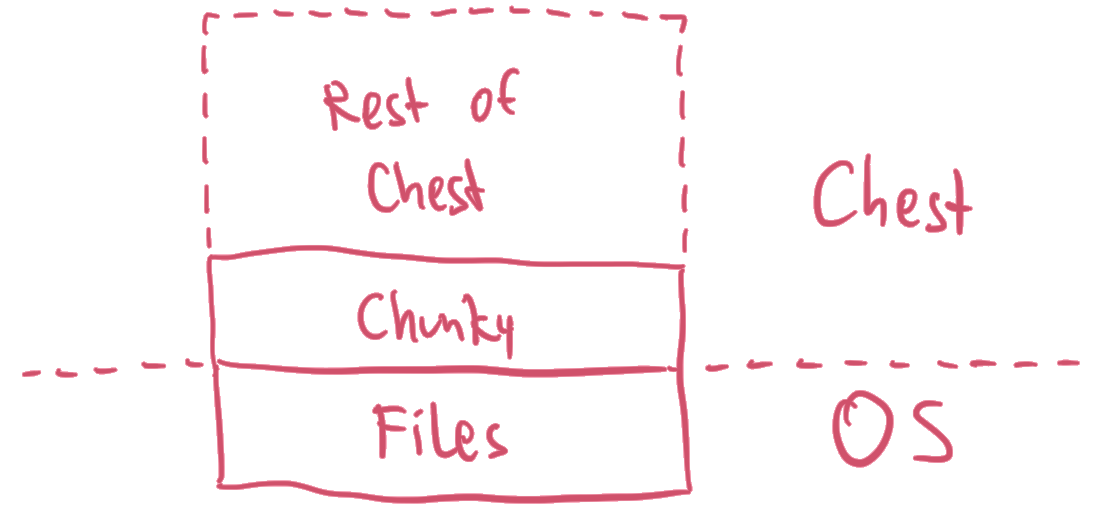 Rest of
Chest
Chest
Chunky
Files
OS